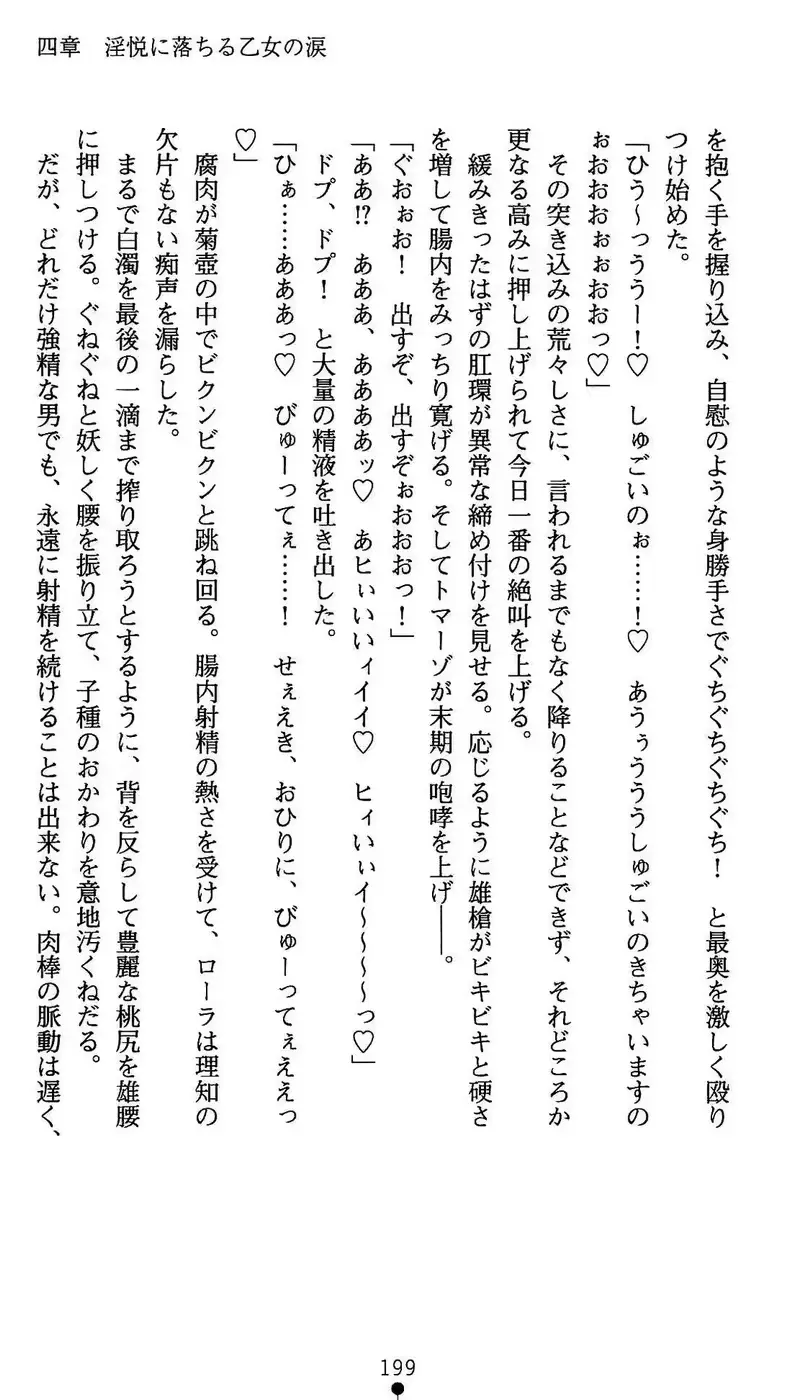 四章　淫悦に落ちる乙女の涙
を抱く手を握り込み、自慰のような身勝手さでぐちぐちぐちぐち！　と最奥を激しく殴り
つけ始めた。
「ひう～っううー！♡　しゅごいのぉ……！♡　あうぅうううしゅごいのきちゃいますの
ぉおおおぉぉおおっ♡」
　その突き込みの荒々しさに、言われるまでもなく降りることなどできず、それどころか
更なる高みに押し上げられて今日一番の絶叫を上げる。
　緩みきったはずの肛環が異常な締め付けを見せる。応じるように雄槍がビキビキと硬さ
を増して腸内をみっちり寛げる。そしてトマーゾが末期の咆哮を上げ――。
「ぐおぉお！　出すぞ、出すぞぉおおおっ！」
「ああ!?　あああ、ああああッ♡　あヒぃいいィイイ♡　ヒィいぃイ～～～～っ♡」
　ドプ、ドプ！　と大量の精液を吐き出した。
「ひぁ……あああっ♡　びゅーってぇ……！　せぇえき、おひりに、びゅーってぇええっ
♡」
　腐肉が菊壺の中でビクンビクンと跳ね回る。腸内射精の熱さを受けて、ローラは理知の
欠片もない痴声を漏らした。
　まるで白濁を最後の一滴まで搾り取ろうとするように、背を反らして豊麗な桃尻を雄腰
に押しつける。ぐねぐねと妖しく腰を振り立て、子種のおかわりを意地汚くねだる。
　だが、どれだけ強精な男でも、永遠に射精を続けることは出来ない。肉棒の脈動は遅く、
199